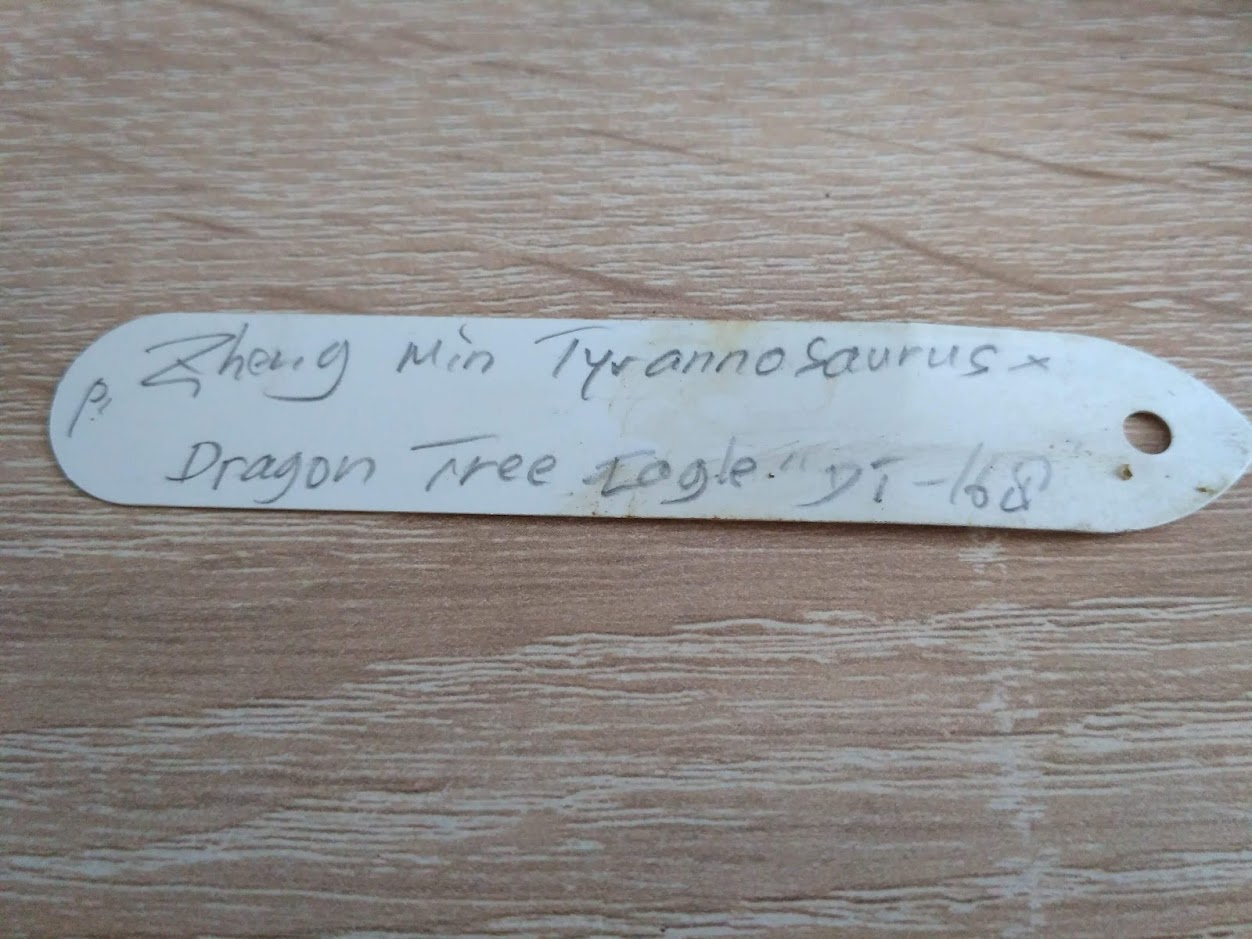 P. Zheng Min Tyrannosaurus x
Dragon Tree Eagle "DT-168